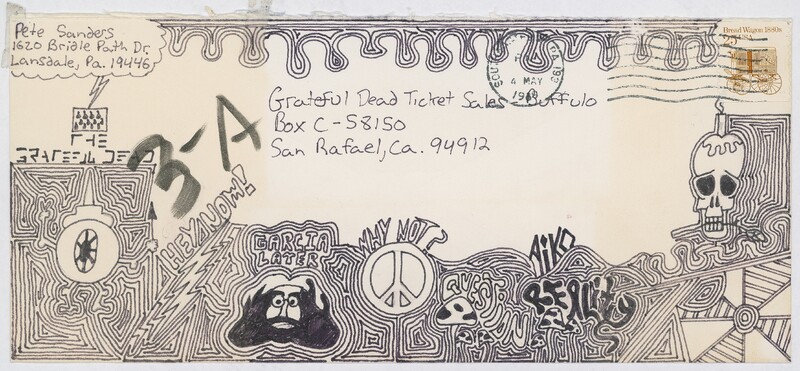 Pete Sanders
1620 Bridle Path Dr.
Lansdale, Pa. 19446
Bread Wagon 1880s
25 USA
4 MAY
Grateful Dead Ticket Sales - Buffulo
Box C-58150
San Rafael, Ca. 94912
3-A
THE
GRATEFUL DEAD
HEY NOW!
GARCIA
LATER
WHY NOT?
QUESTION
REALITY
AIKO